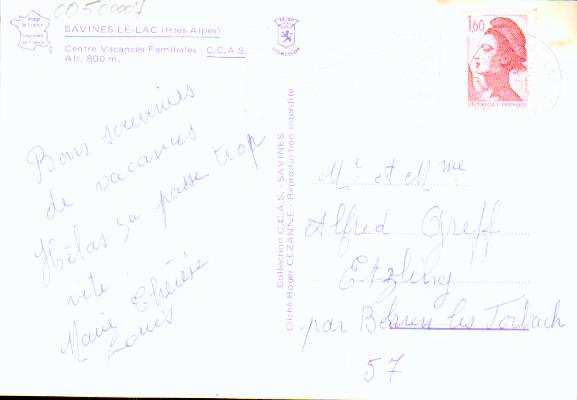 0050007
Image de France
SAVINES-LE-LAC (Htes Alpes)
Centre Vacances Familiales - C.C.A.S.
Alt. 800 m.
LYONCOLOR
1,60
REPUBLIQUE FRANÇAISE
Bons souvenirs
de vacances
Hélas ça passe trop
vite
Marie Thérèse
Louis
Collection C.C.A.S. - SAVINES
Cliché Roger CEZANNE - Reproduction interdite
Mr et Mme
Alfred Greff
Etzling
par Behren les Forbach
57